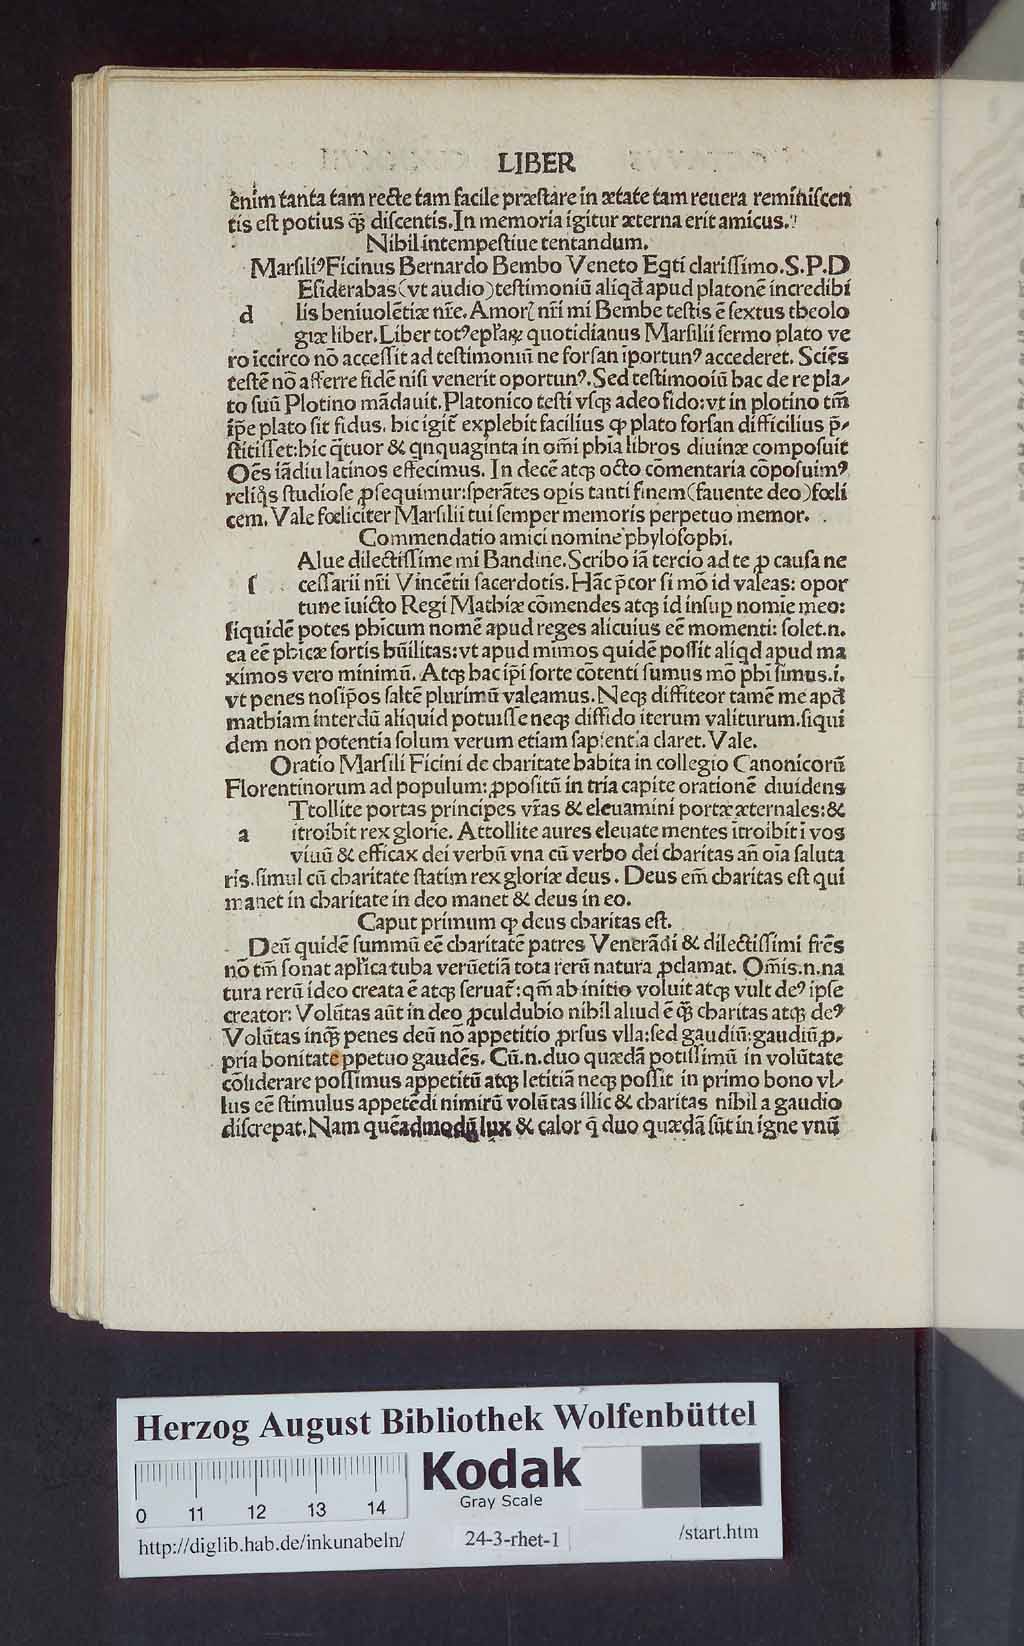 LIBER
enim tanta tam recte tam facile præstare in ætate tam reuera reminiscen
tis est potius q̃ discentis. In memoria igitur æterna erit amicus.
Nihil intempestiue tentandum.
Marsiliꝰ Ficinus Bernardo Bembo Veneto Eqti clarissimo. S.P.D
Esiderabas (vt audio) testimoniũ aliqd̃ apud platonẽ incredibi
d lis beniuolẽtiæ nr̃e. Amorꝭ nr̃i mi Bembe testis ẽ sextus theolo
giæ liber. Liber totꝰ epl̃aꝝ quotidianus Marsilii sermo plato ve
ro iccirco nõ accessit ad testimoniũ ne forsan ĩportunꝰ accederet. Sciẽs
testẽ nõ afferre fidẽ nisi venerit oportunꝰ. Sed testimooiũ hac de re pla-
to suũ Plotino mãdauit. Platonico testi vsqꝫ adeo fido: vt in plotino tm̃
ip̃e plato sit fidus. hic igit̃ explebit facilius ꝙ plato forsan difficilius p̃-
stitisset: hic q̃tuor & qnquaginta in om̃i phia libros diuinæ composuit
Oẽs iãdiu latinos effecimus. In decẽ atqꝫ octo cõmentaria cõposuimꝰ
reliq̃s studiose ꝓsequimur: sperãtes opis tanti finem (fauente deo) fœli
cem. Vale fœliciter Marsilii tui semper memoris perpetuo memor.
Commendatio amici nomine phylosophi.
Alue dilectissime mi Bandine. Scribo iã tercio ad te ꝓ causa ne
s cessarii nr̃i Vincẽtii sacerdotis. Hãc p̃cor si mõ id valeas: opor
tune iuicto Regi Mathiæ cõmendes atqꝫ id insuꝑ nomie meo:
siquidẽ potes phicum nomẽ apud reges alicuius eẽ momenti: solet.n.
ea eẽ phicæ sortis hũilitas: vt apud mimos quidẽ possit aliqd apud ma
ximos vero minimũ. Atqꝫ hac ip̃i sorte cõtenti sumus mõ phi simus.i.
vt penes nosip̃os saltẽ plurimũ valeamus. Neqꝫ diffiteor tamẽ me apd̃
mathiam interdũ aliquid potuisse neqꝫ diffido iterum valiturum. siqui
dem non potentia solum verum etiam sapientia claret. Vale.
Oratio Marsili Ficini de charitate habita in collegio Canonicorũ
Florentinorum ad populum: ꝓpositũ in tria capite orationẽ diuidens
Ttollite portas principes vr̃as & eleuamini portæ æternales: &
a itroibit rex glorie. Attollite aures eleuate mentes ĩtroibit ĩ vos
viuũ & efficax dei verbũ vna cũ verbo dei charitas añ oĩa saluta
ris. simul cũ charitate statim rex gloriæ deus. Deus em̃ charitas est qui
manet in charitate in deo manet & deus in eo.
Caput primum ꝙ deus charitas est.
Deũ quidẽ summũ eẽ charitatẽ patres Venerãdi & dilectissimi fr̃es
nõ tm̃ sonat apl̃ica tuba verũetiã tota rerũ natura ꝓclamat. Om̃is.n.na
tura rerũ ideo creata ẽ atqꝫ seruat̃: qm̃ ab initio voluit atqꝫ vult deꝰ ipse
creator: Volũtas aũt in deo ꝓculdubio nihil aliud ẽ q̃ charitas atqꝫ deꝰ
Volũtas inq̃ penes deũ nõ appetitio ꝓrsus vlla: sed gaudiũ: gaudiũ ꝓ-
pria bonitate ppetuo gaudẽs. Cũ.n.duo quædã potissimũ in volũtate
cõsiderare possimus appetitũ atqꝫ letitiã neqꝫ possit in primo bono vl-
lus eẽ stimulus appetẽdi nimirũ volũtas illic & charitas nihil a gaudio
discrepat. Nam quẽadmodũ lux & calor q̃ duo quædã sũt in igne vnũ
Herzog August Bibliothek Wolfenbüttel
Kodak
Gray Scale
0 11 12 13 14
http://diglib.hab.de/inkunabeln/ 24-3-rhet-1 /start.htm